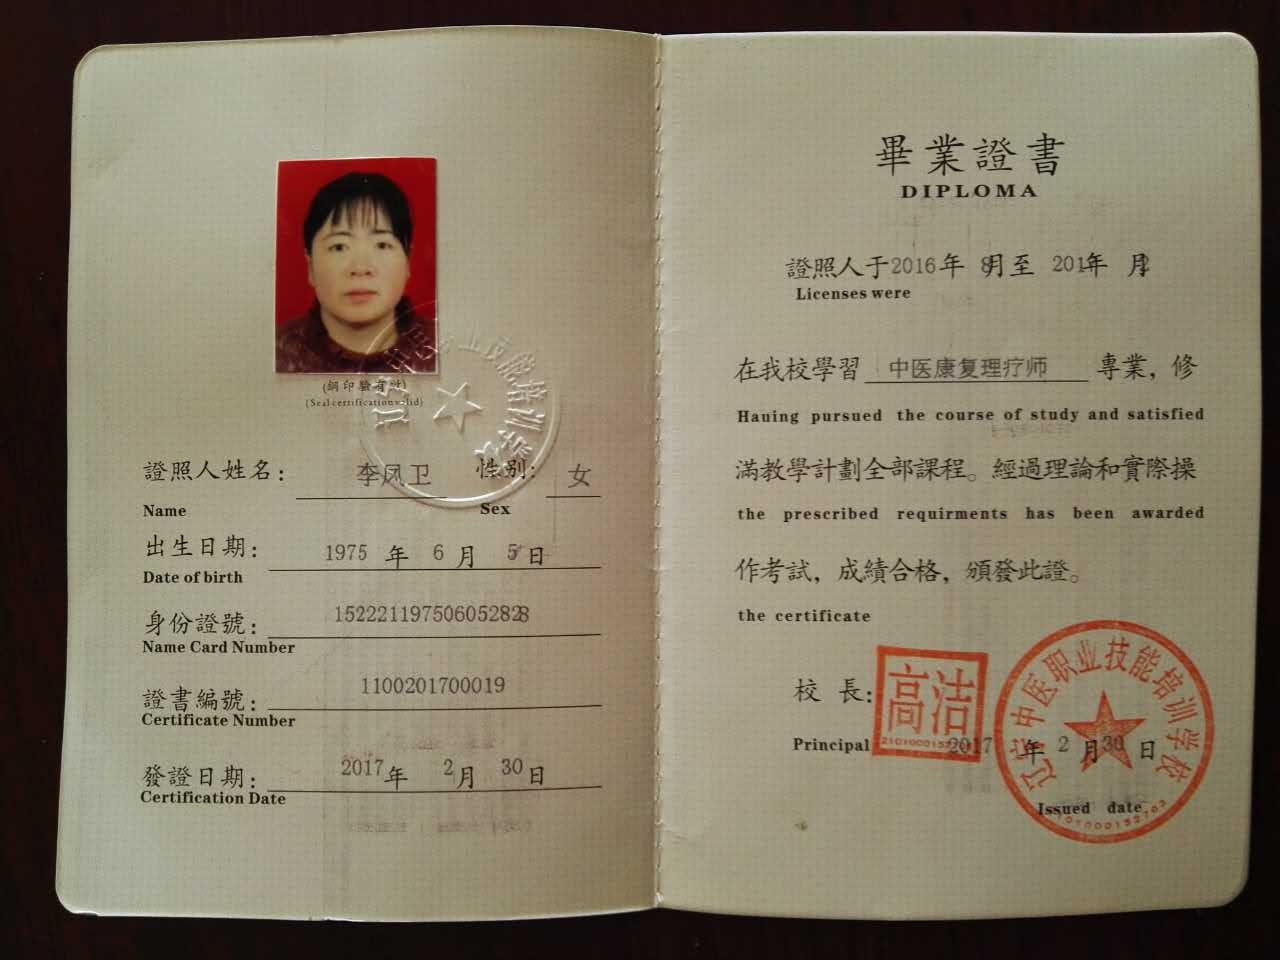 (鋼印驗有効)
(Seal certification valid)
證照人姓名: 李凤卫 性别: 女
Name Sex
出生日期: 1975 年 6 月 5 日
Date of birth
身份證號: 152221197506052828
Name Card Number
證書編號: 1100201700019
Certificate Number
發證日期: 2017 年 2 月 30 日
Certification Date
畢業證書
DIPLOMA
證照人于2016年 8月至 201年 月2
Licenses were
在我校學習 中医康复理疗师 專業，修
Hauing pursued the course of study and satisfied
滿教學計劃全部課程。經過理論和實際操
the prescribed requirments has been awarded
作考試，成績合格，頒發此證。
the certificate
校 長: 高洁
Principal 2017 年 2 月 30 日
Issued date
辽宁中医职业技能培训学校